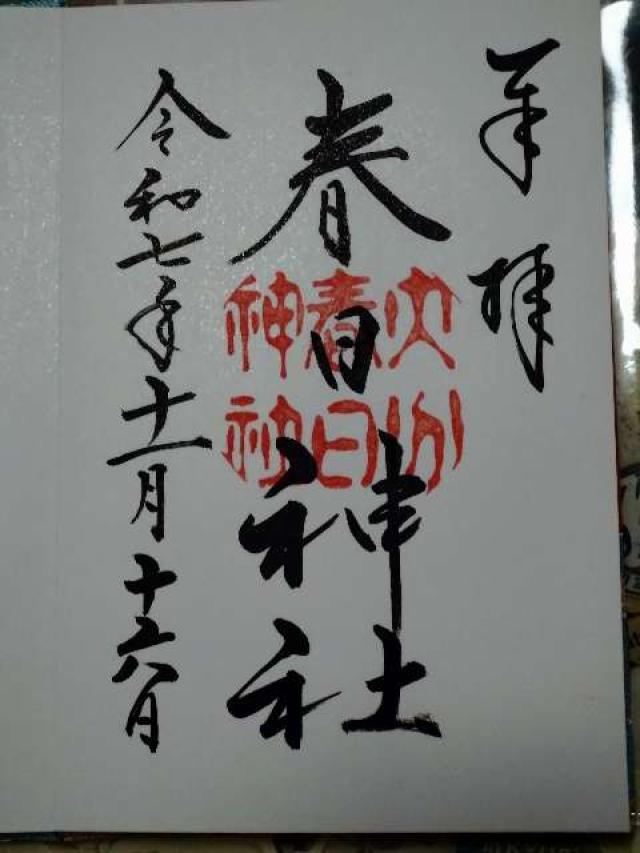 奉拝
春日神社
大分
春日
神社
令和七年十一月十六日